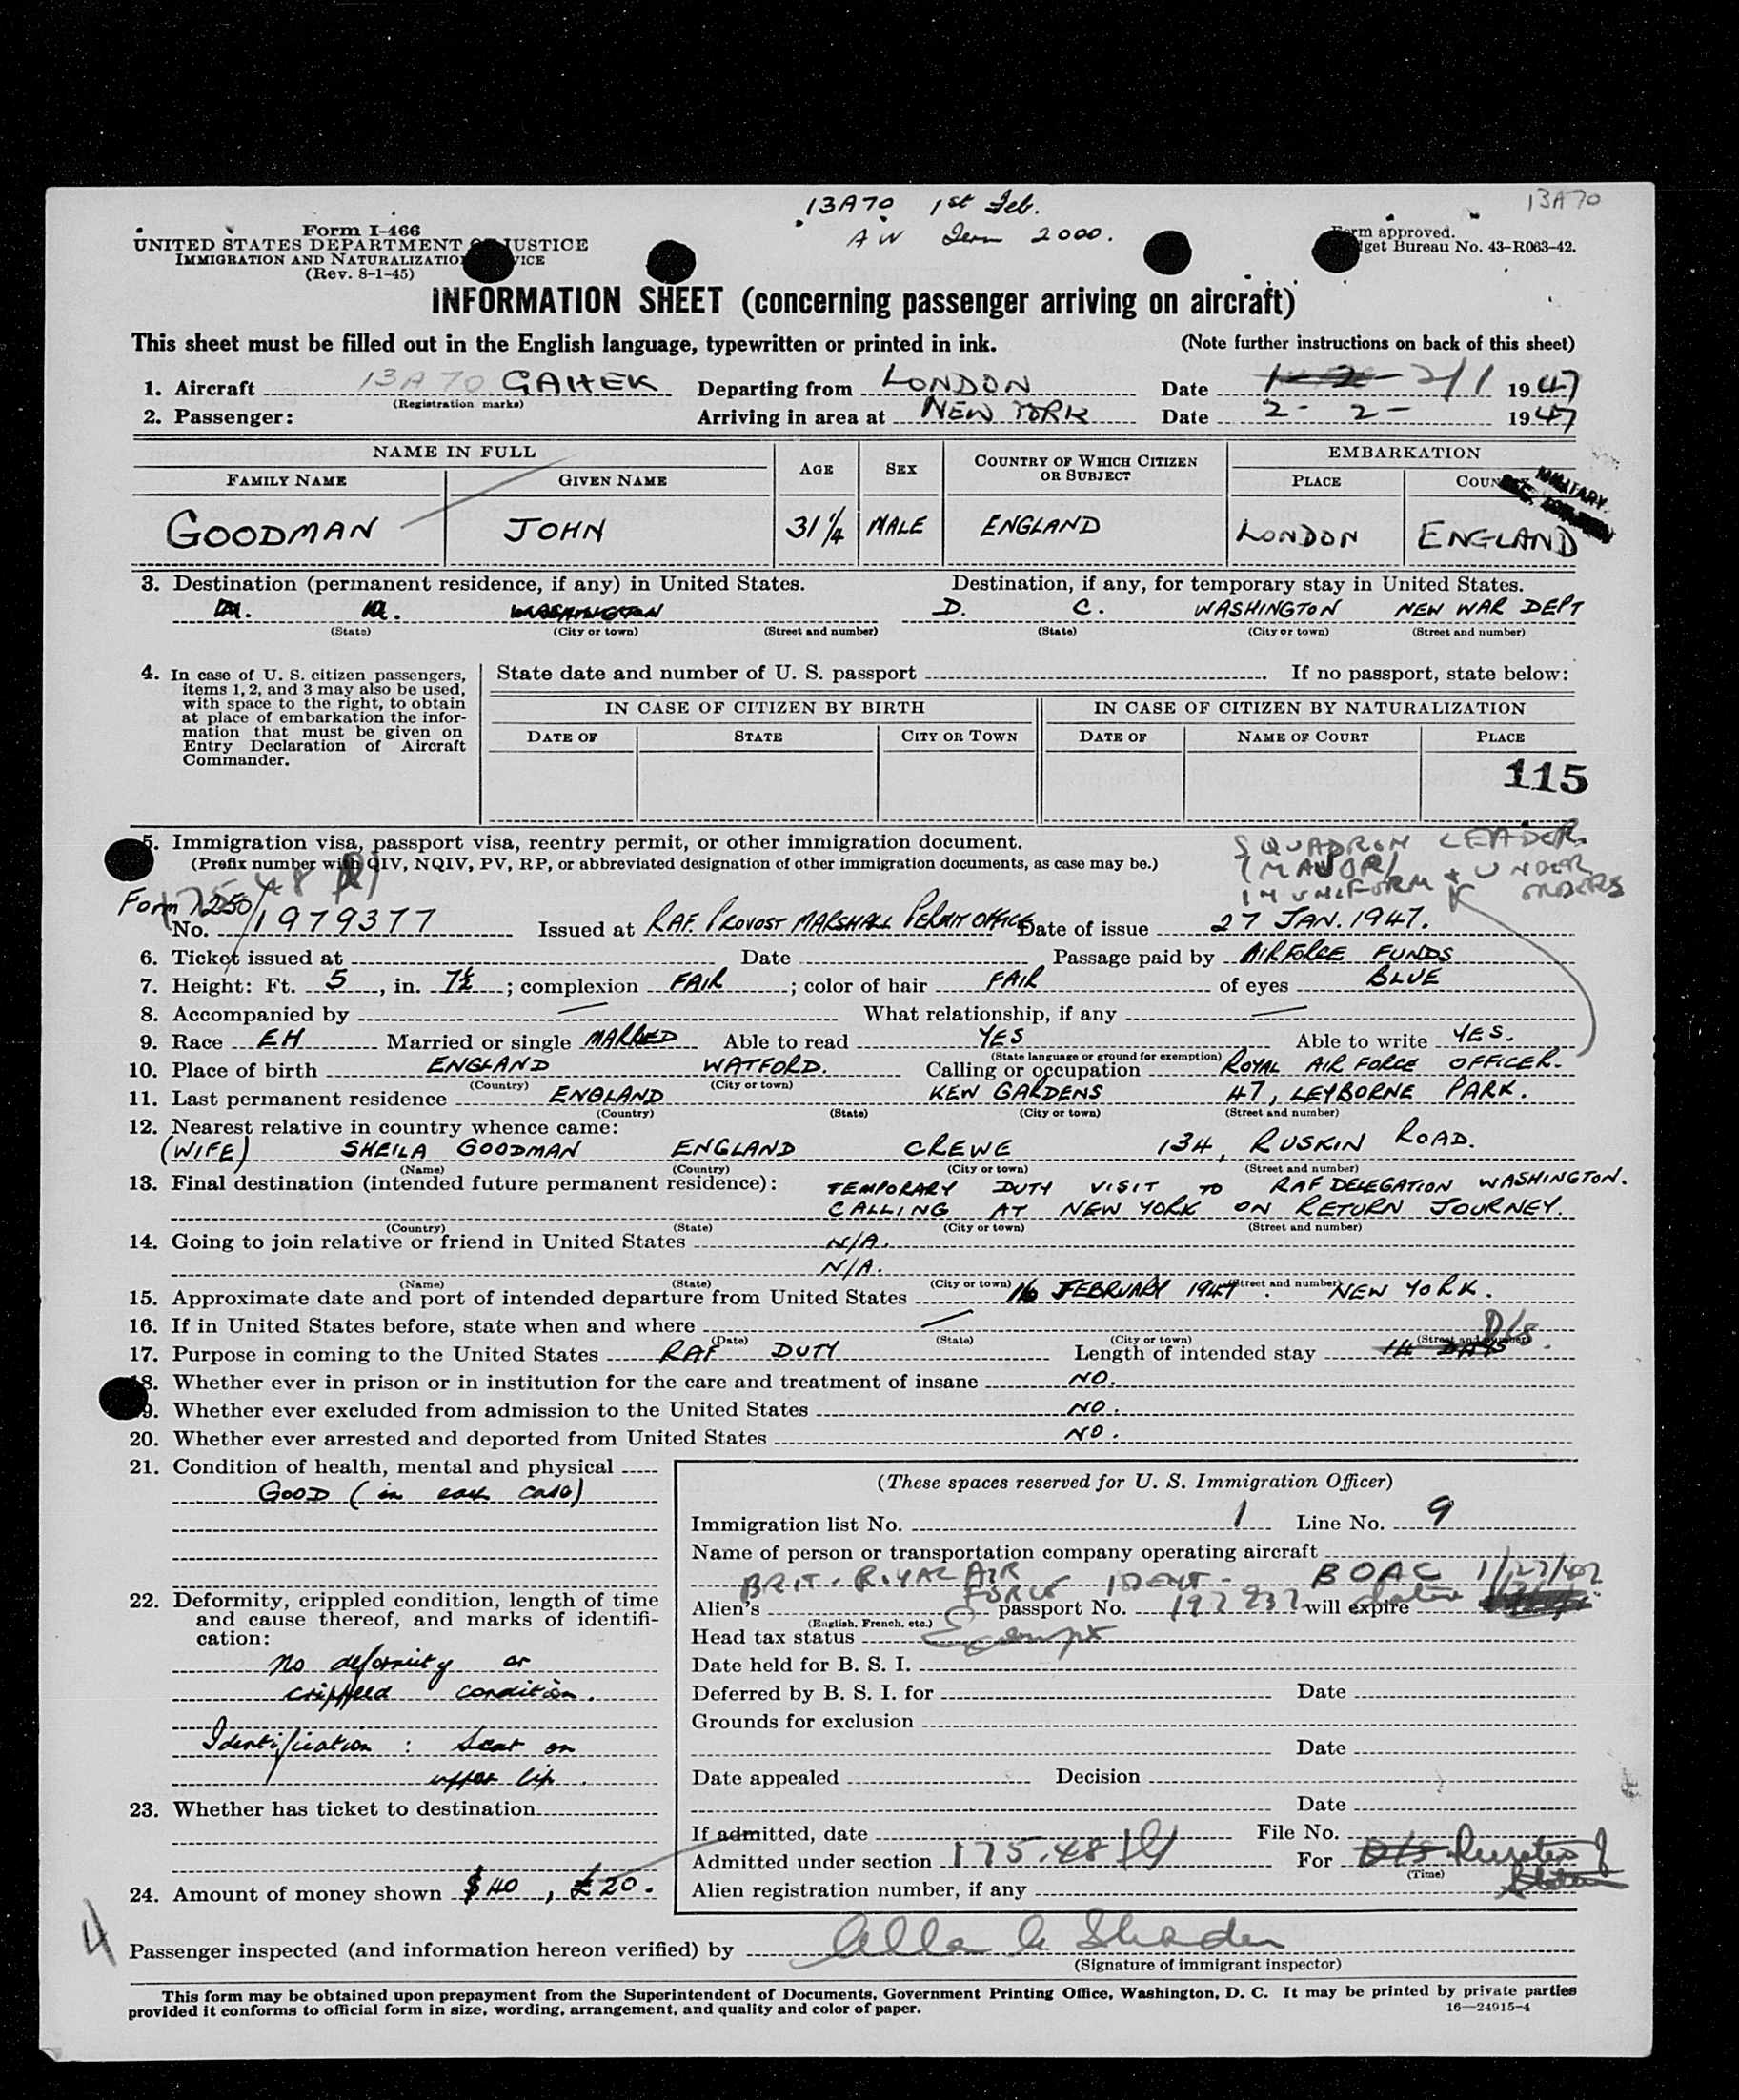 13A70 1st Feb.
13A70
AW Term 2000.
Form I-466
UNITED STATES DEPARTMENT OF JUSTICE
IMMIGRATION AND NATURALIZATION SERVICE
(Rev. 8-1-45)
Form approved.
Budget Bureau No. 43-R063-42.
INFORMATION SHEET (concerning passenger arriving on aircraft)
This sheet must be filled out in the English language, typewritten or printed in ink. (Note further instructions on back of this sheet)
1. Aircraft 13A70 GAHEK Departing from LONDON Date 2/1 1947
(Registration marks)
2. Passenger: Arriving in area at NEW YORK Date 2-2- 1947
NAME IN FULL AGE SEX COUNTRY OF WHICH CITIZEN OR SUBJECT EMBARKATION
FAMILY NAME GIVEN NAME PLACE COUNTRY
MILITARY
GOODMAN JOHN 31 1/4 MALE ENGLAND LONDON ENGLAND
3. Destination (permanent residence, if any) in United States. Destination, if any, for temporary stay in United States.
WASHINGTON D. C. WASHINGTON NEW WAR DEPT
(State) (City or town) (Street and number) (State) (City or town) (Street and number)
4. In case of U. S. citizen passengers, items 1, 2, and 3 may also be used, with space to the right, to obtain at place of embarkation the information that must be given on Entry Declaration of Aircraft Commander.
State date and number of U. S. passport . If no passport, state below:
IN CASE OF CITIZEN BY BIRTH IN CASE OF CITIZEN BY NATURALIZATION
DATE OF STATE CITY OR TOWN DATE OF NAME OF COURT PLACE
115
5. Immigration visa, passport visa, reentry permit, or other immigration document.
(Prefix number with QIV, NQIV, PV, RP, or abbreviated designation of other immigration documents, as case may be.)
SQUADRON LEADER
(MAJOR)
IN UNIFORM & UNDER ORDERS
Form 1250/
No. 1979377 Issued at RAF. PROVOST MARSHALL PERMIT OFFICE Date of issue 27 JAN. 1947.
6. Ticket issued at Date Passage paid by AIR FORCE FUNDS
7. Height: Ft. 5, in. 7½; complexion FAIR; color of hair FAIR of eyes BLUE
8. Accompanied by — What relationship, if any —
9. Race EH Married or single MARRIED Able to read YES Able to write YES.
(State language or ground for exemption)
10. Place of birth ENGLAND WATFORD. Calling or occupation ROYAL AIR FORCE OFFICER.
(Country) (City or town)
11. Last permanent residence ENGLAND KEW GARDENS 47, LEYBORNE PARK.
(Country) (State) (City or town) (Street and number)
12. Nearest relative in country whence came:
(WIFE) SHEILA GOODMAN ENGLAND CREWE 134, RUSKIN ROAD.
(Name) (Country) (City or town) (Street and number)
13. Final destination (intended future permanent residence): TEMPORARY DUTY VISIT TO RAF DELEGATION WASHINGTON.
CALLING AT NEW YORK ON RETURN JOURNEY.
(Country) (State) (City or town) (Street and number)
14. Going to join relative or friend in United States N/A.
N/A.
(Name) (State) (City or town) (Street and number)
15. Approximate date and port of intended departure from United States 16 FEBRUARY 1947. NEW YORK.
16. If in United States before, state when and where —
(Date) (State) (City or town) (Street and number)
D/S
17. Purpose in coming to the United States RAF DUTY Length of intended stay 14 DAYS.
18. Whether ever in prison or in institution for the care and treatment of insane NO.
19. Whether ever excluded from admission to the United States NO.
20. Whether ever arrested and deported from United States NO.
21. Condition of health, mental and physical
GOOD (in each case)
22. Deformity, crippled condition, length of time and cause thereof, and marks of identification:
no deformity or
crippled condition.
Identification : Scar on
upper lip.
23. Whether has ticket to destination
24. Amount of money shown $40, £20.
(These spaces reserved for U. S. Immigration Officer)
Immigration list No. 1 Line No. 9
Name of person or transportation company operating aircraft
BRIT. ROYAL AIR FORCE IDENT - BOAC 1/27/47
Alien's passport No. 197237 will expire dated
(English, French, etc.)
Head tax status Exempt
Date held for B. S. I.
Deferred by B. S. I. for Date
Grounds for exclusion
Date
Date appealed Decision
Date
If admitted, date File No.
Admitted under section 175.48 For D/S Duration of Status
(Time)
Alien registration number, if any
4
Passenger inspected (and information hereon verified) by
(Signature of immigrant inspector)
This form may be obtained upon prepayment from the Superintendent of Documents, Government Printing Office, Washington, D. C. It may be printed by private parties
provided it conforms to official form in size, wording, arrangement, and quality and color of paper. 16—24915-4